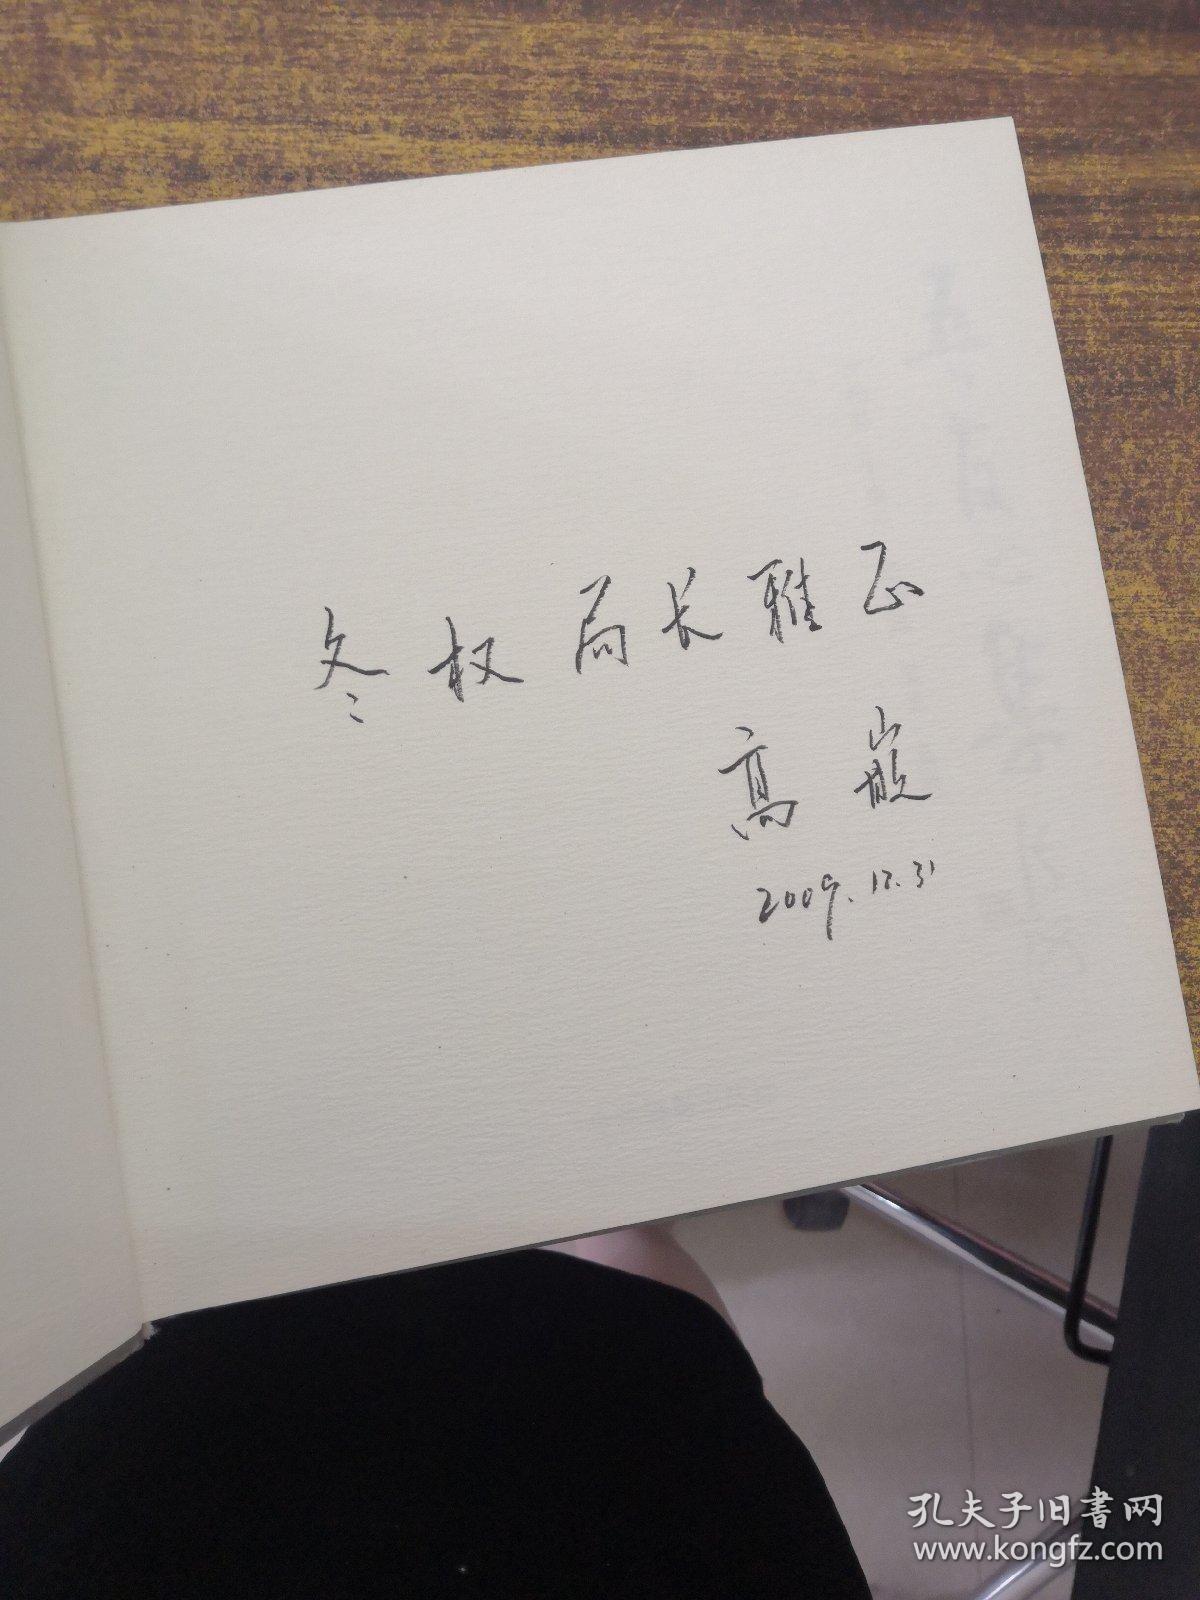 冬权局长雅正
高嵌
2009.12.31
孔夫子旧书网
www.kongfz.com